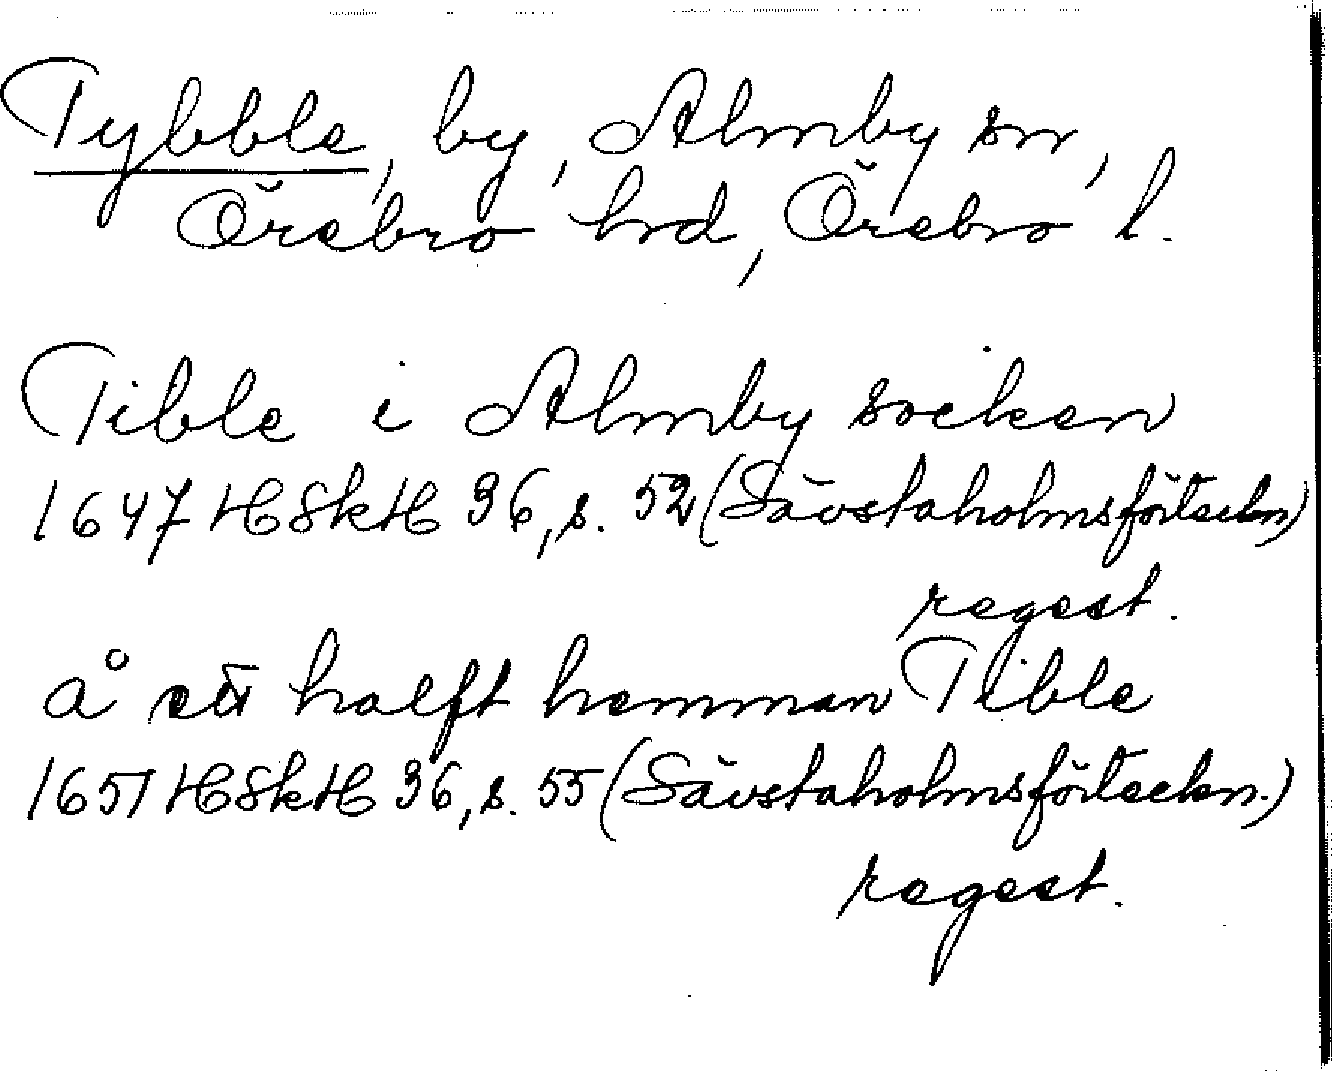 Tybble, by, Almby sn,
Örebro hrd, Örebro l.
Tible i Almby socken
1647 HSkH 36, s. 52 (Sävstaholmsförteckn)
regest.
å ett halft hemman Tible
1651 HSkH 36, s. 55 (Sävstaholmsförteckn.)
regest.